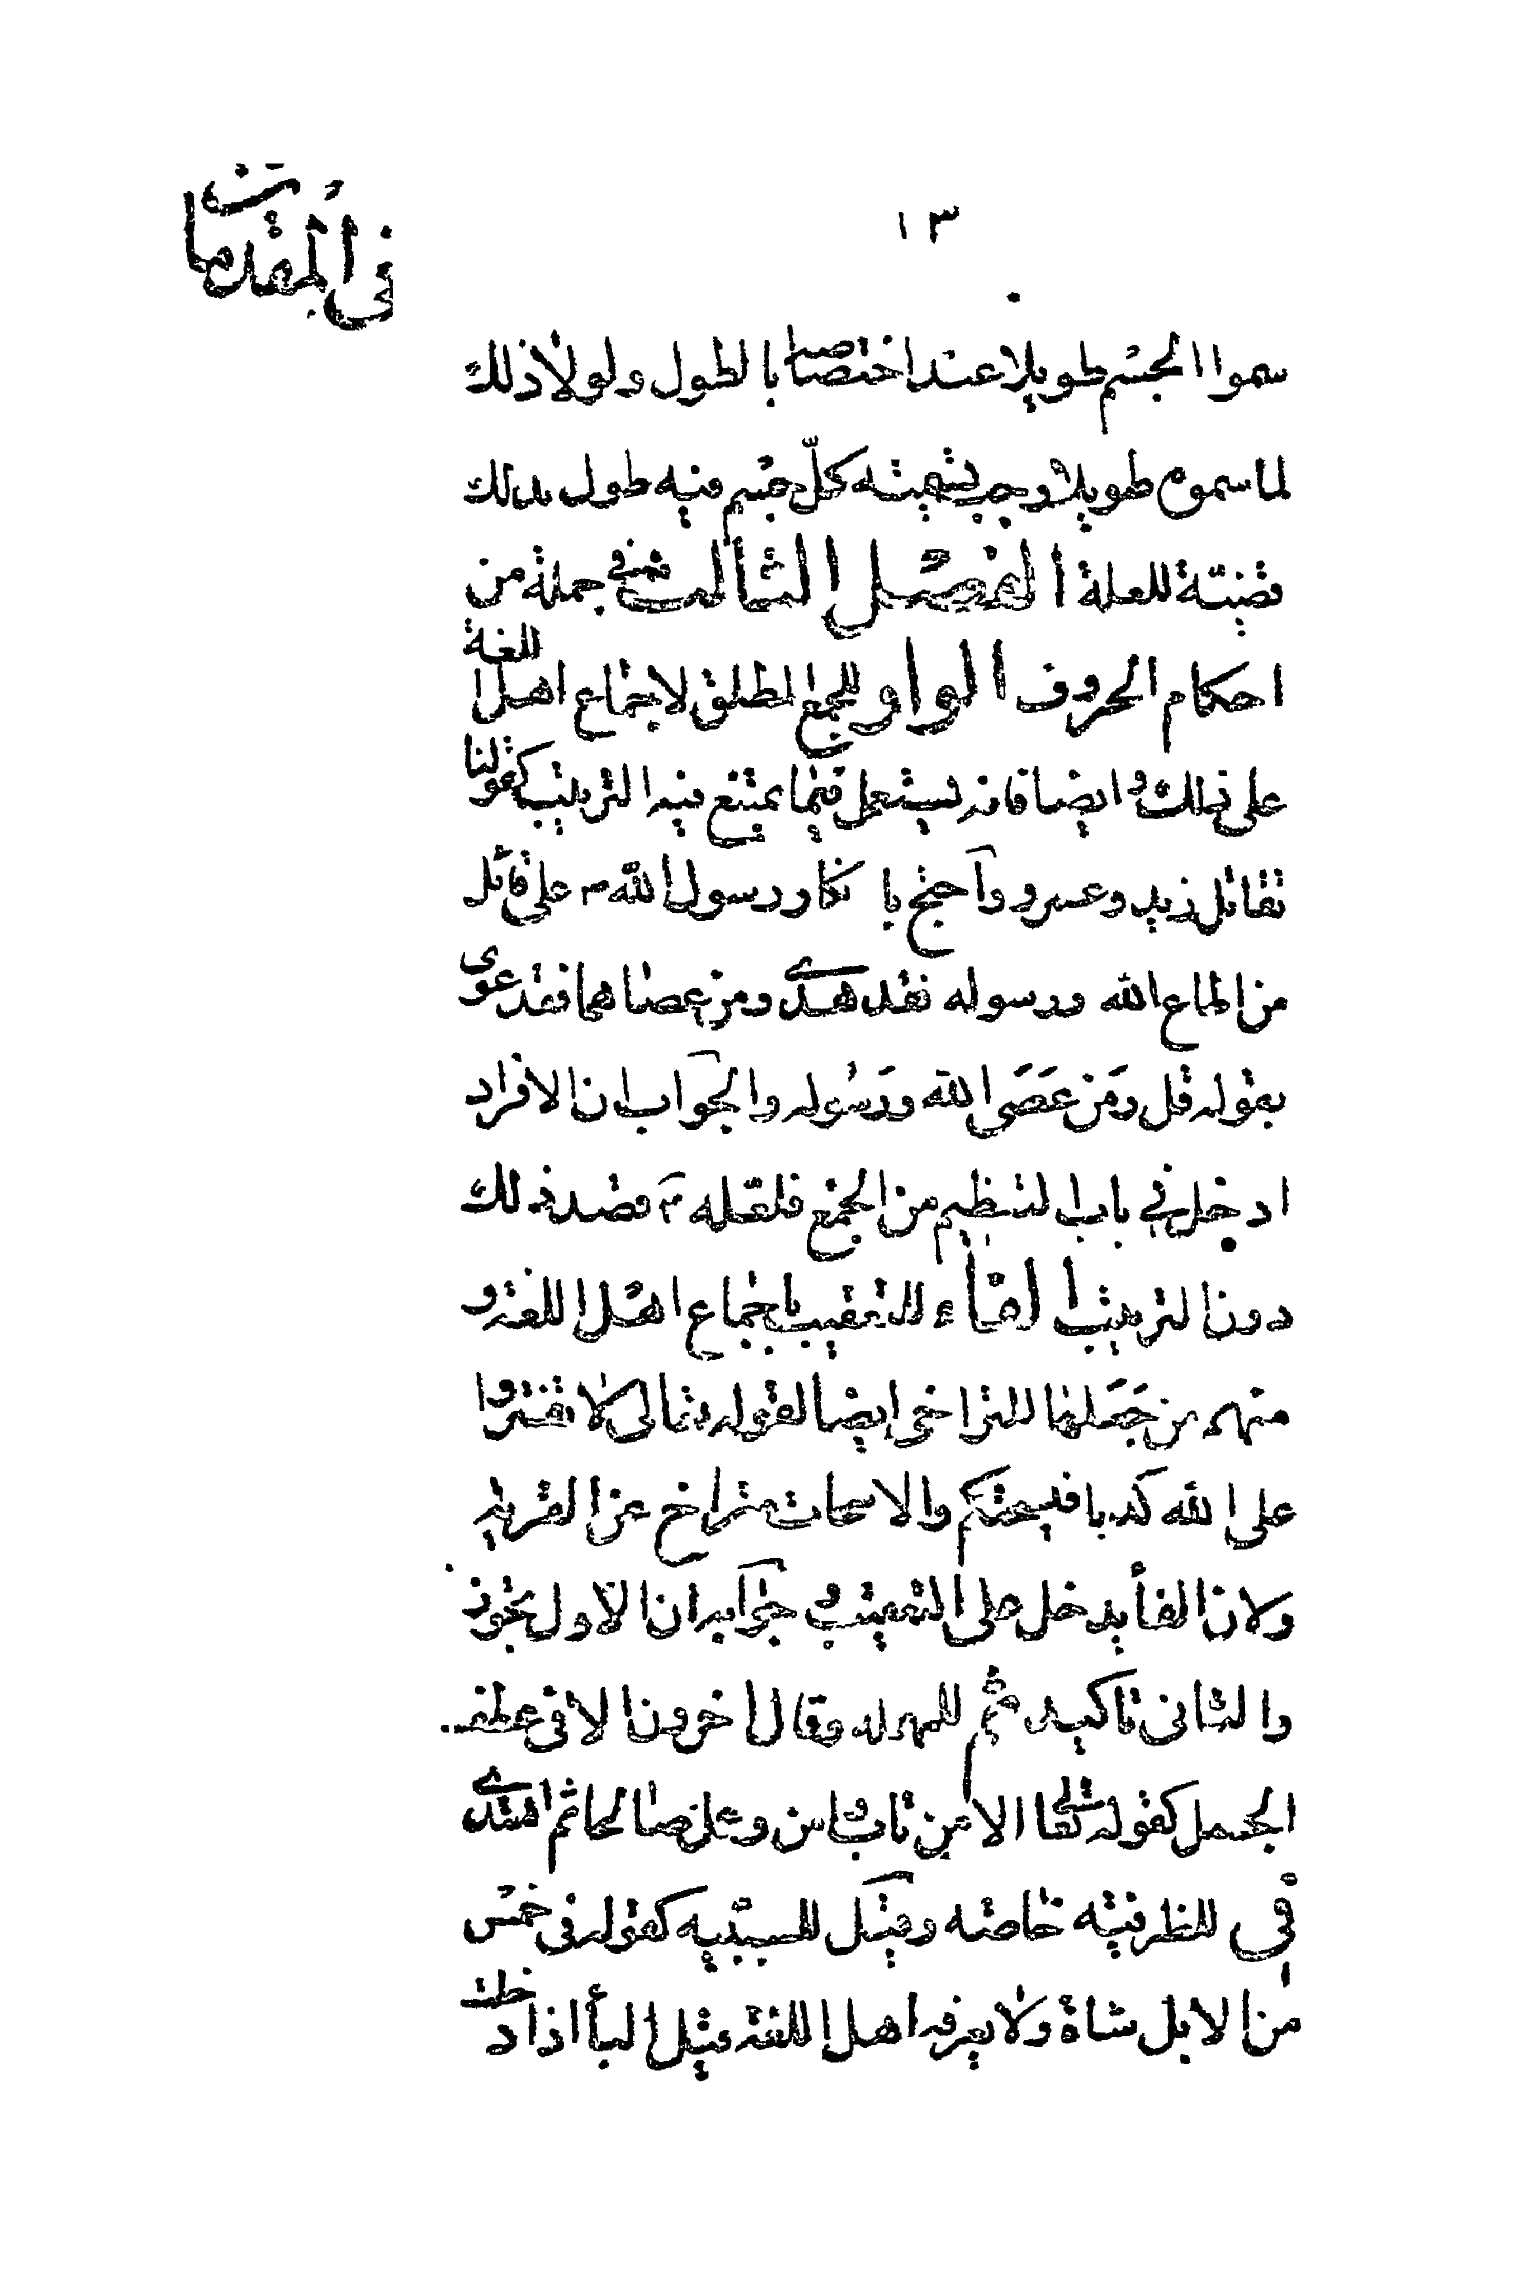 في المقدمات
١٣
سموا الجسم طويلا عند اختصاصه بالطول ولولا ذلك
لما سموه طويلا وجب تسميته كلّ جسم فيه طول بذلك
قضيّة للعلة الفصل الثالث في جملة من
احكام الحروف الواو للجمع المطلق لاجماع اهل اللغة
على ذلك وايضا فانه يستعمل فيما يمتنع فيه الترتيب كقولنا
تقاتل زيد وعمرو وآحتج بانكار رسول الله ص على قائل
من اطاع الله ورسوله فقد هدى ومن عصاهما فقد غوى
بقوله قل وَمَن عَصَى الله وَرَسُوله والجواب ان الافراد
ادخل في باب التعظيم من الجمع فلعله ص قصد ذلك
دون الترتيب الفاء للتعقيب باجماع اهل اللغة و
منهم من جَعَلها للتراخي ايضا لقوله تعالى لا تفتروا
على الله كذبا فيسحتكم والاسحات متراخ عن الفرية
ولان الفأ يدخل على التعقيب وجوآبه ان الاول تجوّز
والثاني تاكيد ثم للمهلة وقال آخرون الا في عطف
الجمل كقوله تعالى الا من تاب وامن وعمل صالحا ثم اهتدى
في للظرفيّة خاصّة وقيل للسببيه كقوله في خمس
من الابل شاة ولا يعرفه اهل اللغة مثل البأ اذا دخلت